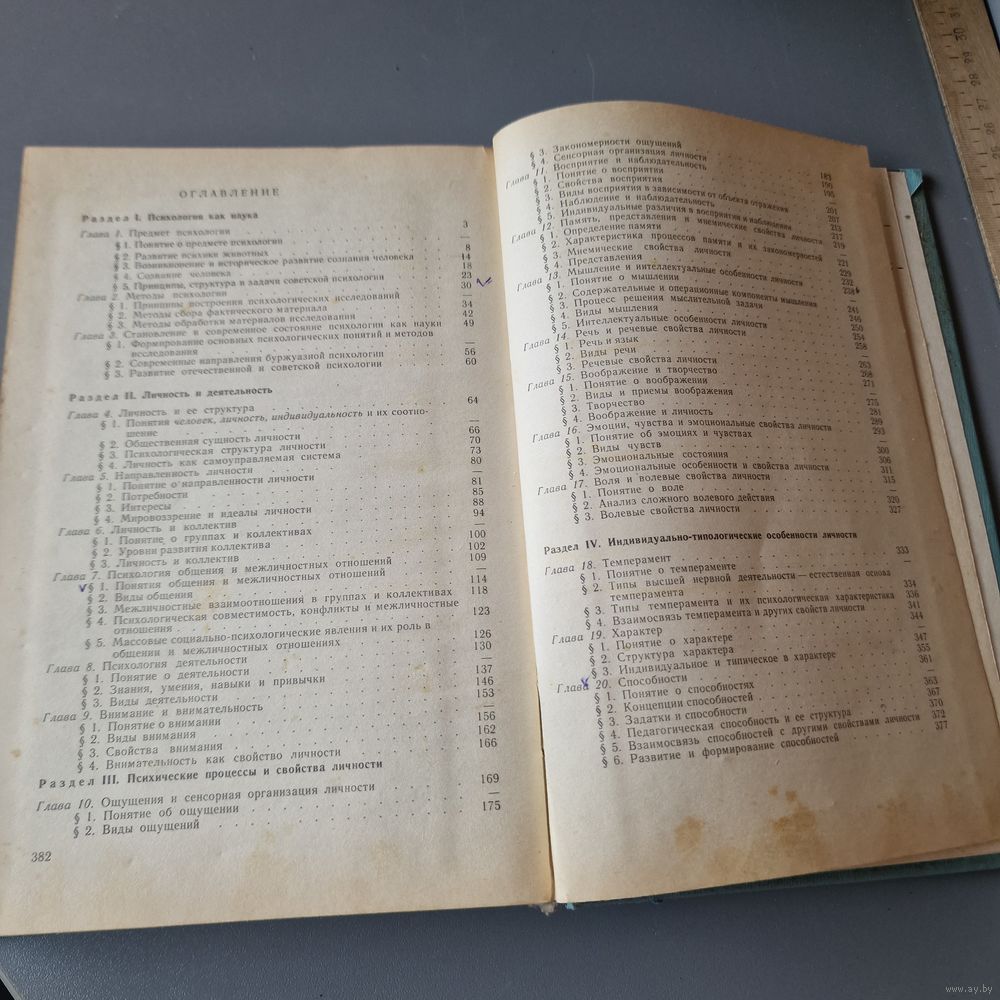 ОГЛАВЛЕНИЕ
Раздел I. Психология как наука
Глава 1. Предмет психологии 3
§ 1. Понятие о предмете психологии —
§ 2. Развитие психики животных 8
§ 3. Возникновение и историческое развитие сознания человека 14
§ 4. Сознание человека 18
§ 5. Принципы, структура и задачи советской психологии 23
Глава 2. Методы психологии 30
§ 1. Принципы построения психологических исследований —
§ 2. Методы сбора фактического материала 34
§ 3. Методы обработки материалов исследования 42
Глава 3. Становление и современное состояние психологии как науки 49
§ 1. Формирование основных психологических понятий и методов
исследования —
§ 2. Современные направления буржуазной психологии 56
§ 3. Развитие отечественной и советской психологии 60
Раздел II. Личность и деятельность
Глава 4. Личность и ее структура 64
§ 1. Понятия человек, личность, индивидуальность и их соотно-
шение —
§ 2. Общественная сущность личности 66
§ 3. Психологическая структура личности 70
§ 4. Личность как самоуправляемая система 73
Глава 5. Направленность личности 80
§ 1. Понятие о направленности личности —
§ 2. Потребности 81
§ 3. Интересы 85
§ 4. Мировоззрение и идеалы личности 88
Глава 6. Личность и коллектив 94
§ 1. Понятие о группах и коллективах —
§ 2. Уровни развития коллектива 100
§ 3. Личность и коллектив 102
Глава 7. Психология общения и межличностных отношений 109
§ 1. Понятия общения и межличностных отношений —
§ 2. Виды общения 114
§ 3. Межличностные взаимоотношения в группах и коллективах 118
§ 4. Психологическая совместимость, конфликты и межличностные
отношения 123
§ 5. Массовые социально-психологические явления и их роль в
общении и межличностных отношениях 126
Глава 8. Психология деятельности 130
§ 1. Понятие о деятельности —
§ 2. Знания, умения, навыки и привычки 137
§ 3. Виды деятельности 146
Глава 9. Внимание и внимательность 153
§ 1. Понятие о внимании —
§ 2. Виды внимания 156
§ 3. Свойства внимания 162
§ 4. Внимательность как свойство личности 166
Раздел III. Психические процессы и свойства личности
Глава 10. Ощущения и сенсорная организация личности 169
§ 1. Понятие об ощущении —
§ 2. Виды ощущений 175
382
§ 3. Закономерности ощущений
§ 4. Сенсорная организация личности 183
Глава 11. Восприятие и наблюдательность 190
§ 1. Понятие о восприятии 195
§ 2. Свойства восприятия
§ 3. Виды восприятия в зависимости от объекта отражения 201
§ 4. Наблюдение и наблюдательность 207
§ 5. Индивидуальные различия в восприятии и наблюдении 213
Глава 12. Память, представления и мнемические свойства личности 217
§ 1. Определение памяти 219
§ 2. Характеристика процессов памяти и их закономерностей
§ 3. Мнемические свойства личности 221
§ 4. Представления 229
Глава 13. Мышление и интеллектуальные особенности личности 232
§ 1. Понятие о мышлении 234
§ 2. Содержательные и операционные компоненты мышления
§ 3. Процесс решения мыслительной задачи 241
§ 4. Виды мышления 246
§ 5. Интеллектуальные особенности личности 250
Глава 14. Речь и речевые свойства личности 254
§ 1. Речь и язык 258
§ 2. Виды речи
§ 3. Речевые свойства личности 263
Глава 15. Воображение и творчество 268
§ 1. Понятие о воображении 271
§ 2. Виды и приемы воображения
§ 3. Творчество 275
§ 4. Воображение и личность 281
Глава 16. Эмоции, чувства и эмоциональные свойства личности 289
§ 1. Понятие об эмоциях и чувствах 293
§ 2. Виды чувств
§ 3. Эмоциональные состояния 300
§ 4. Эмоциональные особенности и свойства личности 306
Глава 17. Воля и волевые свойства личности 311
§ 1. Понятие о воле 315
§ 2. Анализ сложного волевого действия 320
§ 3. Волевые свойства личности 327
Раздел IV. Индивидуально-типологические особенности личности
Глава 18. Темперамент 333
§ 1. Понятие о темпераменте —
§ 2. Типы высшей нервной деятельности — естественная основа
темперамента 334
§ 3. Типы темперамента и их психологическая характеристика 336
§ 4. Взаимосвязь темперамента и других свойств личности 341
Глава 19. Характер 344
§ 1. Понятие о характере
§ 2. Структура характера 347
§ 3. Индивидуальное и типическое в характере 355
Глава 20. Способности 361
§ 1. Понятие о способностях
§ 2. Концепции способностей 363
§ 3. Задатки и способности 367
§ 4. Педагогическая способность и ее структура 370
§ 5. Взаимосвязь способностей с другими свойствами личности 372
§ 6. Развитие и формирование способностей 377
26 27 28 29 30 31
www.ay.by